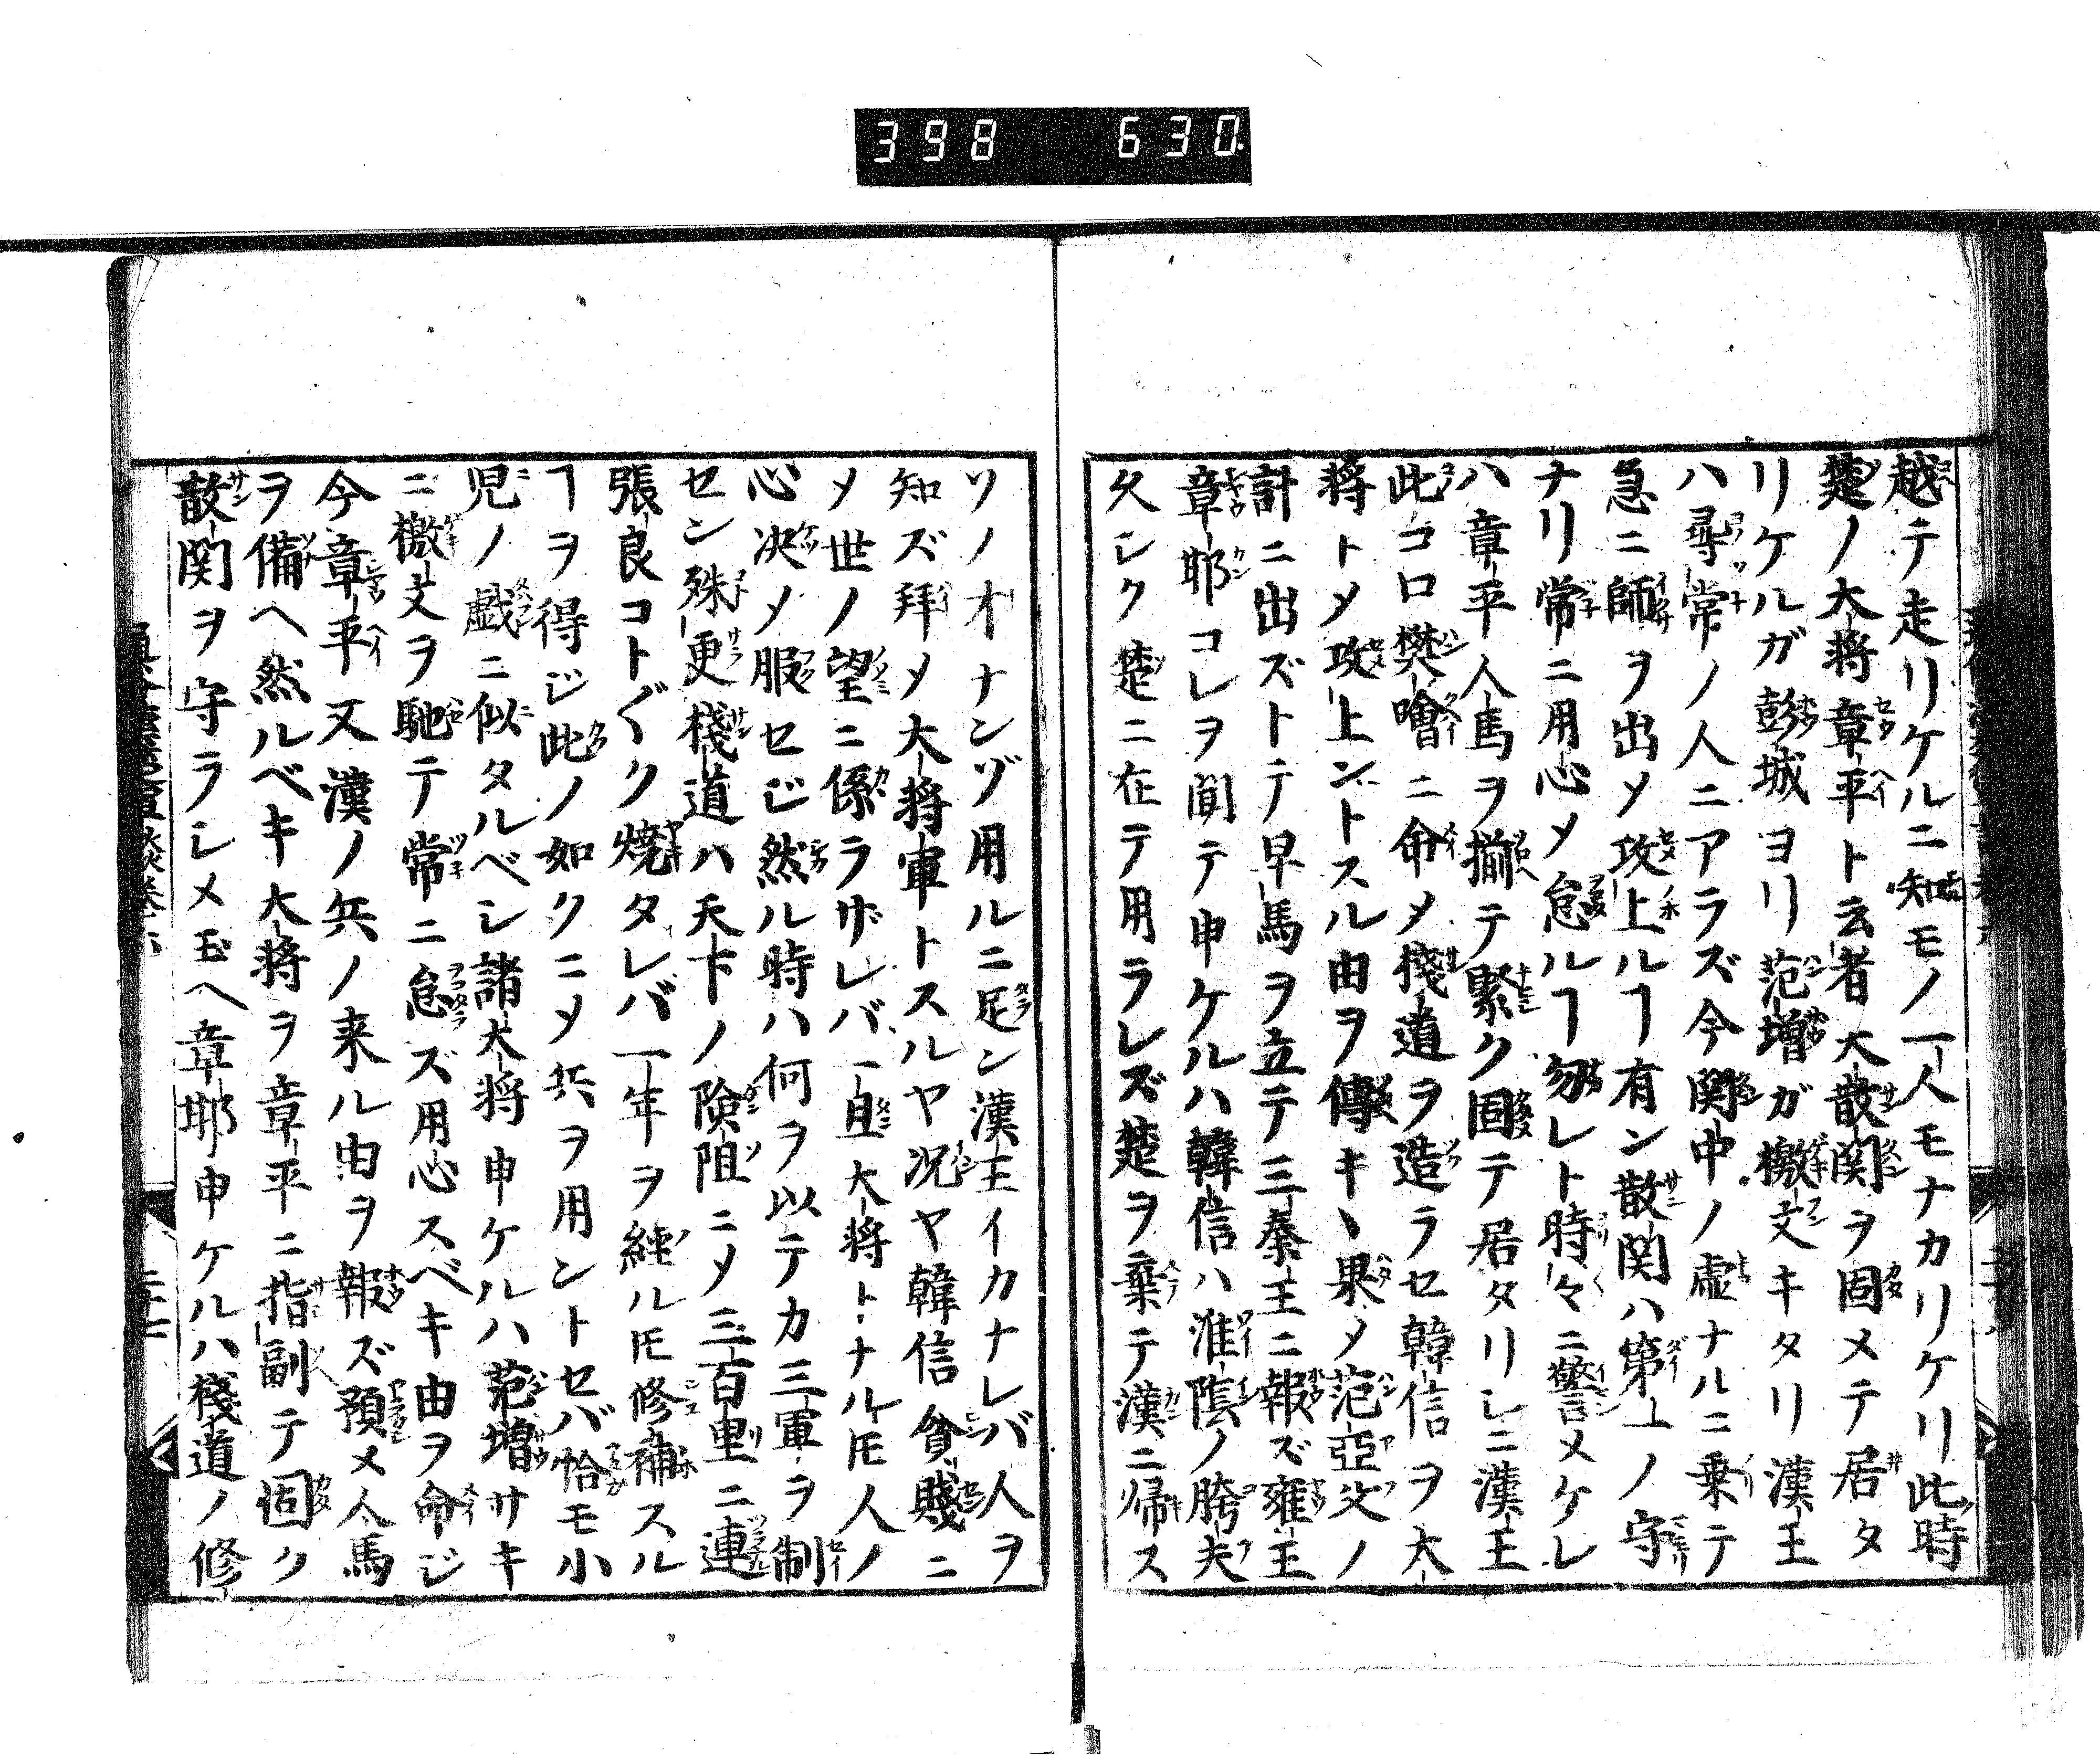 398 630
越テ走リケルニ知モノ一人モナカリケリ此時
楚ノ大将章平ト云者大散関ヲ固メテ居タ
リケルガ彭城ヨリ范増ガ檄文キタリ漢王
ハ尋常ノ人ニアラズ今関中ノ虚ナルニ乗テ
急ニ師ヲ出メ攻上ルヿ有ン散関ハ第一ノ守
ナリ常ニ用心メ怠ルヿ勿レト時々ニ警メケレ
ハ章平人馬ヲ揃テ緊ク固テ居タリシニ漢王
此コロ樊噲ニ命メ棧道ヲ造ラセ韓信ヲ大
将トメ攻上ントスル由ヲ傳キヽ果メ范亞父ノ
計ニ出ズトテ早馬ヲ立テ三秦王ニ報ズ雍王
章耶コレヲ聞テ申ケルハ韓信ハ淮陰ノ胯夫
久シク楚ニ在テ用ラレズ楚ヲ棄テ漢ニ帰ス
ソノオナンゾ用ルニ足ン漢王イカナレバ人ヲ
知ズ拜メ大将軍トスルヤ况ヤ韓信貧賤ニ
メ世ノ望ニ係ラザレバ一旦大将トナル𪜈人ノ
心决メ服セジ然ル時ハ何ヲ以テカ三軍ヲ制
セン殊更棧道ハ天下ノ険阻ニメ三百里ニ連
張良コト〴〵ク焼タレバ一年ヲ経ル𪜈修補スル
ヿヲ得ジ此ノ如クニメ兵ヲ用ントセバ恰モ小
児ノ戯ニ似タルベシ諸大将申ケルハ范増サキ
ニ檄文ヲ馳テ常ニ怠ズ用心スベキ由ヲ命ジ
今章平又漢ノ兵ノ来ル由ヲ報ズ預メ人馬
ヲ備ヘ然ルベキ大将ヲ章平ニ指副テ固ク
散関ヲ守ラシメ玉ヘ章耶申ケルハ棧道ノ修